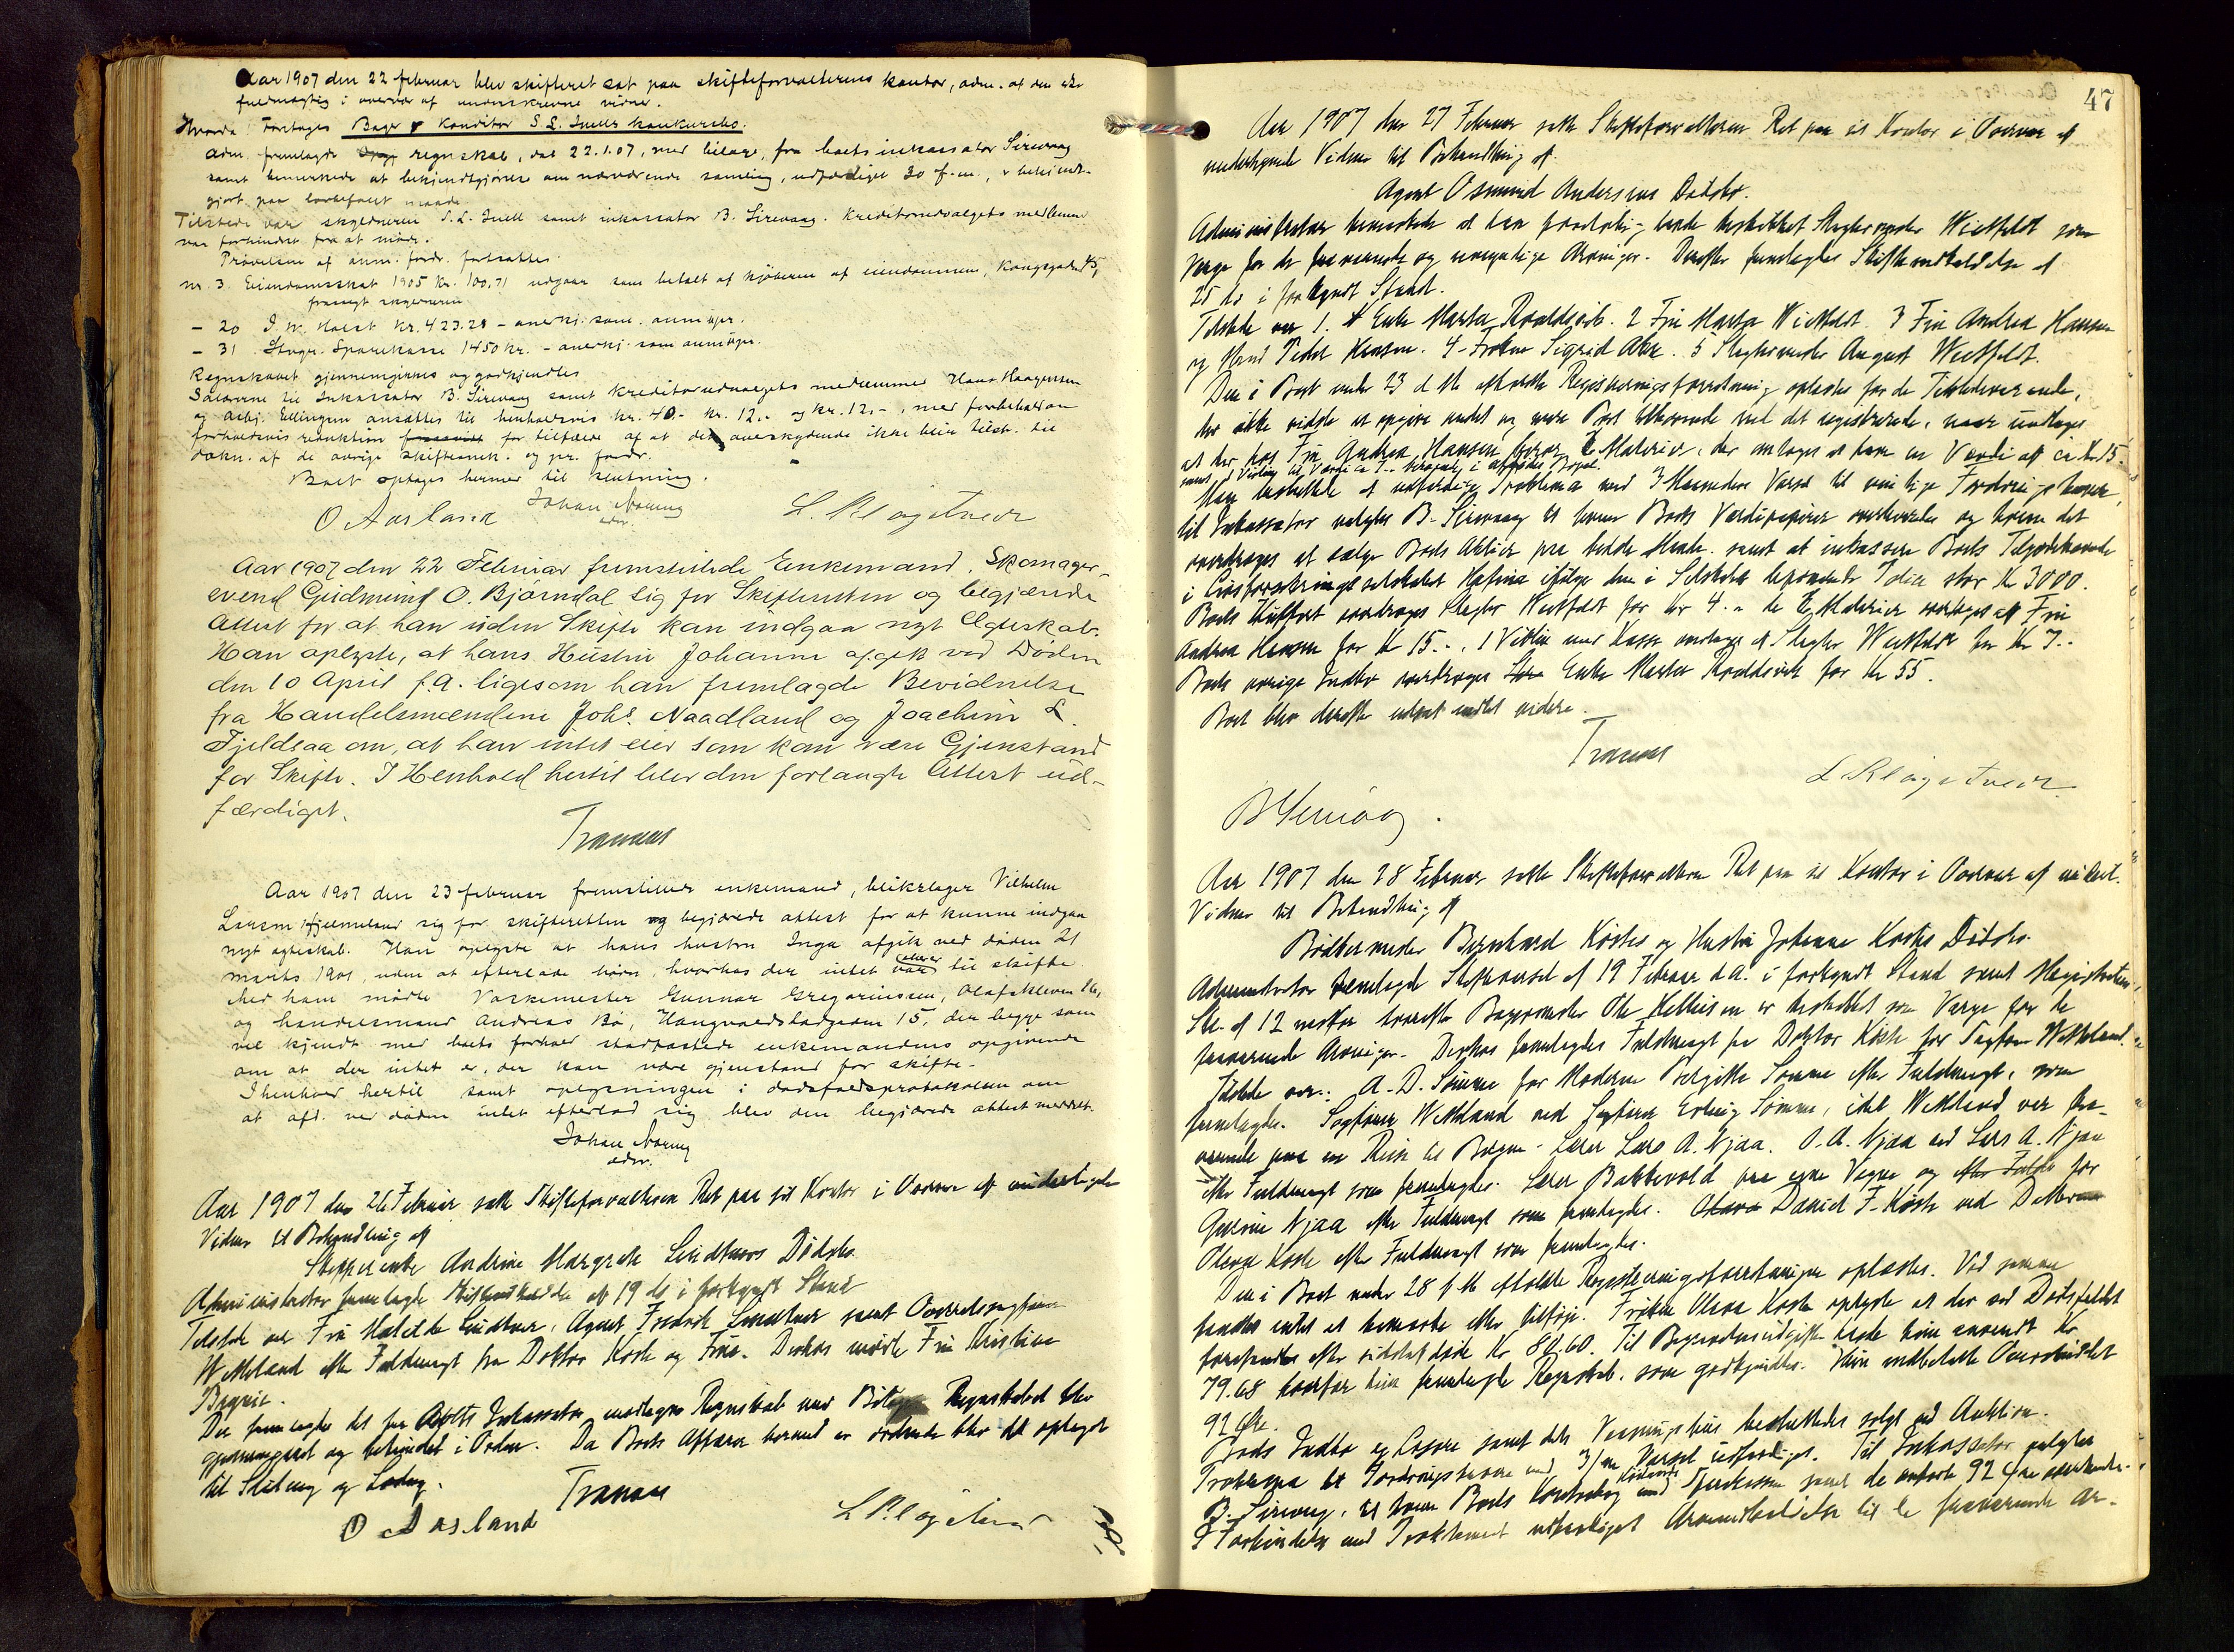 Aar 1907 den 22 februar blev skifteret sat paa skifteforvalterens kontor, adm. af den edsv.
fuldmægtig i overvær af underskrevne vidner.
Hvorda: Foretages Bager & Konditor S. L. Snells konkursbo.
Adm. fremlagde regnskab, dat 22.1.07, med bilage, fra boets inkassator Sirevaag
samt bemærkede at bekjendtgjørelse om nærværende samling, udfærdiget 30 f.m., er bekjendt-
gjort paa lovbefalet maade.
Tilstede var skyldneren S. L. Snell samt inkassator B. Sirevaag. Kreditorudvalgets medlemmer
var forhindret fra at møde.
Prøvelsen af anm. fordr. fortsattes.
nr. 3. Eiendomsskat 1905 kr. 100,71 udgaar som betalt af kjøberen af eiendommen, Kongsgaden 45,
frasagt skyldneren
- 20 I. W. Holst kr. 423.28 - anerkj. som anm. upr.
- 31 Stvgr. Sparekasse 1450 kr. - anerkj. som anm. upr.
Regnskabet gjennemgikkes og godkjendtes
Salærerne til Inkassator B. Sirevaag samt kreditorudvalgets medlemmer Hans Haagensen
og arbj. Ellingsen ansattes til henholdsvis kr. 40.- kr. 12.- og kr. 12.-, med forbehold om
forholdsvis reduktion for tilfælde af at det overskydende ikke blir tilstr. til
dækn. af de øvrige skifteomk. og pr. fordr.
Boet optages hermed til slutning.
O Aasland Johan Norem L. Klogetvedt
edsv.
Aar 1907 den 22 Februar fremstillede Enkemand, Skomager-
svend Gudmund O. Bjørndal sig for Skifteretten og begjærede
Attest for at han uden Skifte kan indgaa nyt Ægteskab.
Han oplyste, at hans Hustru Johanne afgik ved Døden
den 10 April f.A. ligesom han fremlagde Bevidnelse
fra Handelsmændene Johs. Naadland og Joachim L.
Fjeldsaa om, at han intet eier som kan være Gjenstand
for Skifte. I Henhold hertil blev den forlangte Attest ud-
færdiget.
Tranaas
Aar 1907 den 23 februar fremstilles enkemand, blikslager Vilhelm
Larsen Hjelmeland sig for skifteretten og begjærede attest for at kunne indgaa
nyt ægteskab. Han oplyste at hans hustru Inga afgik ved døden 21
marts 1901, uden at efterlade børn, hvorhos der intet var til skifte.
Med ham mødte Vaskemester Gunnar Gregoriussen, Olafskleven
og handelsmand Andreas Bø, Haugvaldstadgaden 15, der begge som
vel kjendt med boets forhold stadfæstede enkemandens opgivende
om at der intet er, der kan være gjenstand for skifte.
I henhold hertil samt oplysningen i dødsfaldsprotokollen om
at afd. ved døden intet efterlod sig blev den begjærede attest meddelt.
Johan Norem
edsv.
Aar 1907 den 26 Februar satte Skifteforvalteren Ret paa sit Kontor i Overvær af undertegnede
Vidner til Behandling af
Skipperenke Andrine Margrete Lindtners Dødsbo
Administrator fremlagde Skifteindkaldelse af 19 ds i forkyndt Stand
Tilstede var Fru Mathilde Lindtner, Agent Fredrik Lindtner samt Overretssagfører
Wetteland efter Fuldmagt fra Doktor Köste og Frue. Desuden mødte Fru Kristine
Bryne.
Der fremlagdes det fra Boets Inkassator modtagne Regnskab med Bilage. Regnskabet blev
gjennemgaaet og befundet i Orden. Da Boets Affærer hermed er ordnede blev det optaget
til Slutning og Lodning.
Tranaas
O Aasland L Klogetvedt
47
Aar 1907 den 27 Februar satte Skifteforvalteren Ret paa sit Kontor i Overvær af
undertegnede Vidner til Behandling af
Agent Osmund Andersens Dødsbo.
Administrator bemærkede at han havde beskikket Slagtermester Westfeldt som
Verge for de fraværende og umyndige Arvinger. Derefter fremlagdes Skifteindkaldelse af
25 ds i forkyndt Stand.
Tilstede var 1. Enke Marta Roaldsvik. 2 Fru Marta Westfeldt. 3 Fru Andrea Hansen
og Mand Peder Hansen. 4 - Frøken Sigrid Aase. 5 Slagtermester August Westfeldt.
Den i Boet under 23 d M afholdte Registreringsforretning oplæstes for de Tilstedeværende,
der ikke vidste at opgive andet og mere Boet tilhørende end det registrerede, naar undtages
at der hos Fru Andrea Hansen beror E. Malerier, der antages at have en Værdi af ca Kr 15.
Man besluttede at udfærdige Proklama med 3 Maaneders Varsel til mulige Fordringshavere,
til Inkassator valgtes B. Sirevaag til hvem Boets Værdipapirer overleveredes og hvem det
overdroges at sælge Boets Aktier paa bedste Maade samt at inkassere Boets Tilgodehavende
i Livsforsikringsselskabet Hafnia ifølge den i Selskabet beroende Police stor Kr 3000.
Boets Kuffert overdroges Slagter Westfeldt for Kr 4.- de E. Malerier overtoges af Fru
Andrea Hansen for Kr 15.-. 1 Violin med Kasse overtoges af Slagter Westfeldt for Kr 7.-
Boets øvrige Indbo overdroges Enke Marta Roaldsvik for Kr 55.
Boet blev derefter udsat indtil videre.
Tranaas
L Klogetvedt
B Sirevaag.
Aar 1907 den 28 Februar satte Skifteforvalteren Ret paa sit Kontor i Overvær af undert.
Vidner til Behandling af
Bødkermester Bernhard Köstes og Hustru Johanne Köstes Dødsbo.
Administrator fremlagde Skiftevarsel af 19 Februar d.A. i forkyndt Stand samt Magistratens
Skr. af 12 næstfør hvorefter Bagermester Ole Hellesen er beskikket som Verge for de
fraværende Arvinger. Derhos fremlagdes Fuldmagt fra Doktor Köste for Sagfører Wetteland.
Tilstede var: A. D. Sømme for Moderen Bergitte Sømme efter Fuldmagt, som
fremlagdes. Sagfører Wetteland ved Sagfører Erling Sømme, idet Wetteland var fra-
værende paa en Reise til Bergen - Lærer Lars A. Njaa. O. A. Njaa ved Lars A. Njaa
efter Fuldmagt som fremlagdes. Lærer Bakkevold paa egne Vegne og efter Fuldm for
Gurine Njaa efter Fuldmagt som fremlagdes. Daniel F. Köste ved Datteren
Olava Köste efter Fuldmagt som fremlagdes.
Den i Boet under 28 f M afholdte Registreringsforretningen oplæstes. Ved samme
fandtes intet at bemærke eller tilføje. Frøken Olava Köste oplyste at der ved Dødsfaldet
forefandtes efter sidstafdøde Kr 80.60. Til Begravelsesudgifter havde hun anvendt Kr
79.68 hvorfor hun fremlagde Regnskab, som godkjendtes. Hun indbetalte Overskuddet
92 Øre.
Boets Indbo og Løsøre samt dets Vaaningshus besluttedes solgt ved Auktion.
Proklama til Fordringshavere med 3/m Varsel udfærdiges. Til Inkassator valgtes
B. Sirevaag, til hvem Boets Kontrabog med Sparekassen samt de anførte 92 Øre overleveredes.
I Forbindelse med Proklamaet udfærdiges Arveindkaldelse til de fraværende Ar-